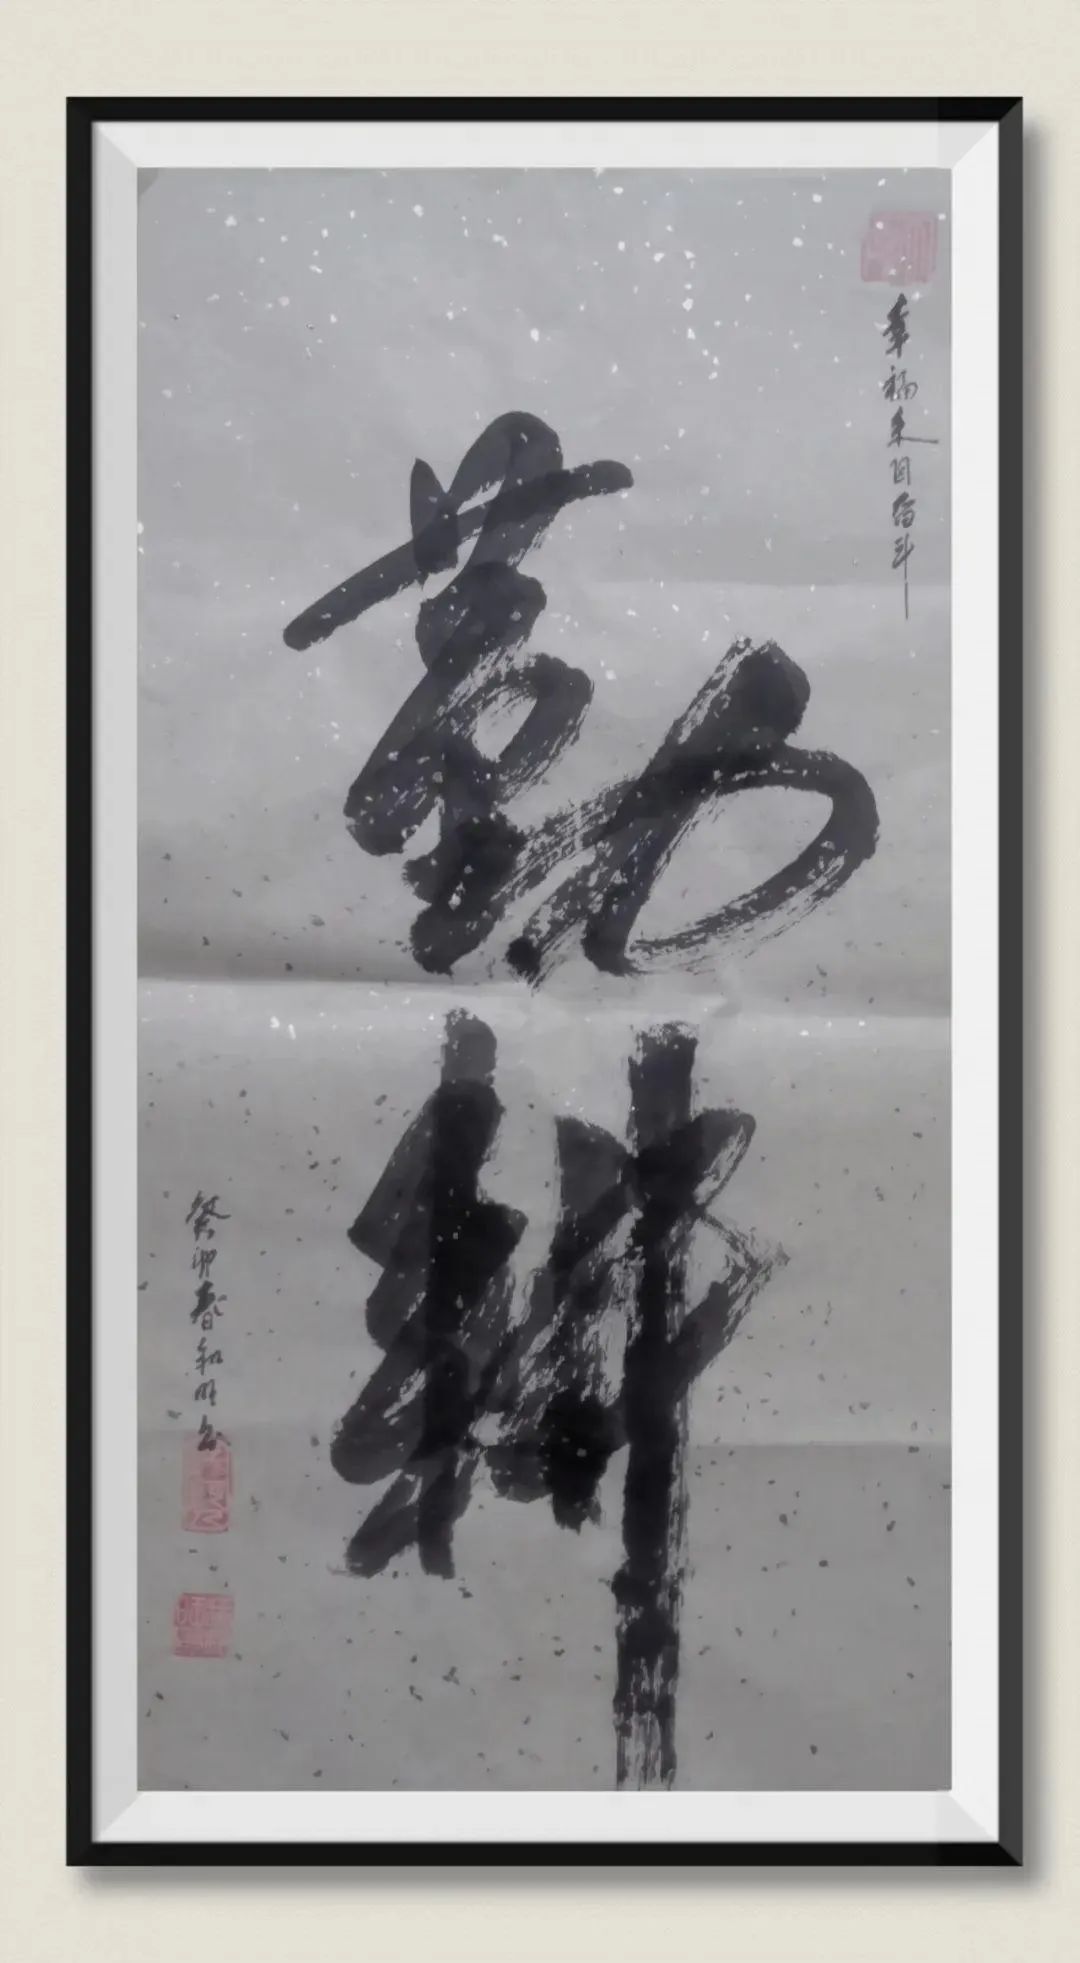 幸福来自奋斗
勤耕
癸卯春和明书